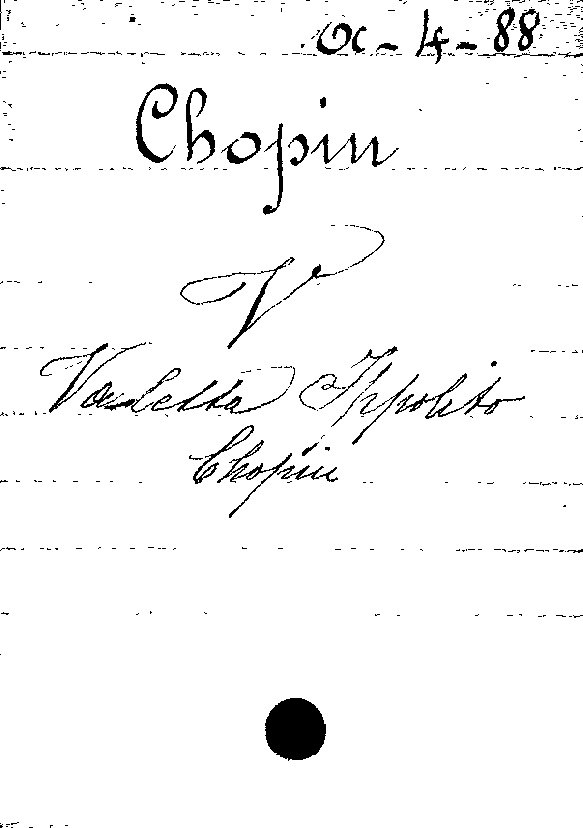 α-4-88
Chopin
V
Valetta Ippolito
Chopin